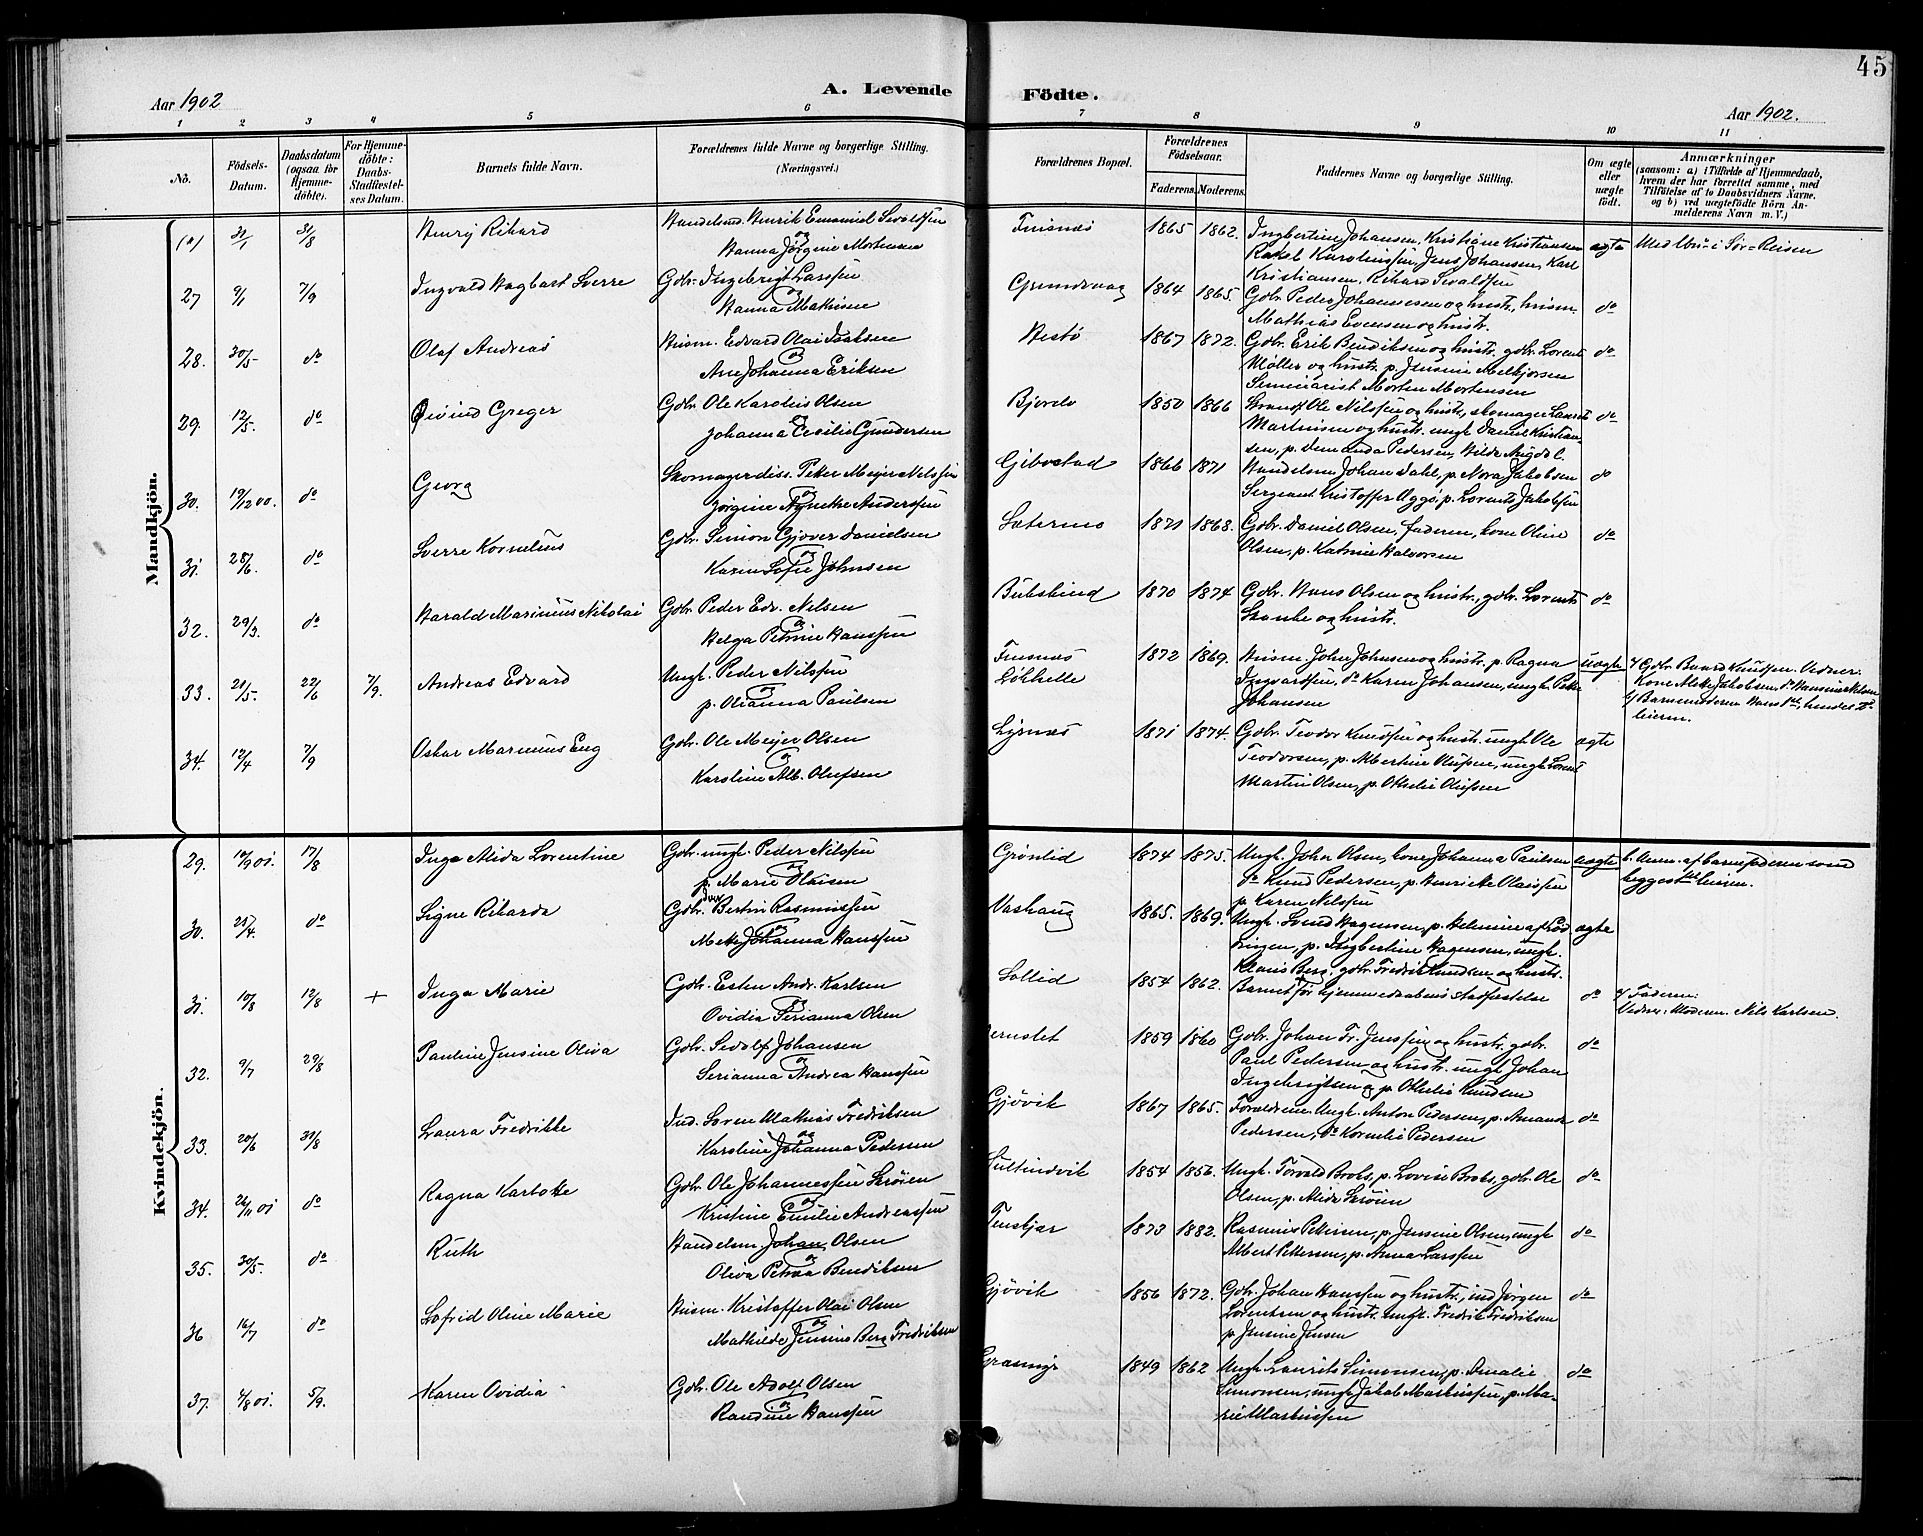 45
Aar 1902
A. Levende Födte.
Aar 1902.
1 2 3 4 5 6 7 8 9 10 11
No.
Födsels-Datum.
Daabsdatum (ogsaa for Hjemme-döbte).
For Hjemme-döbte: Daabs-Stadfæstel-ses Datum.
Barnets fulde Navn.
Forældrenes fulde Navne og borgerlige Stilling.
(Næringsvei.)
Forældrenes Bopæl.
Forældrenes Födselsaar.
Faderens. Moderens.
Faddernes Navne og borgerlige Stilling.
Om ægte eller uægte født.
Anmærkninger
(saasom: a) i Tilfælde af Hjemmedaab, hvem der har forrettet samme, med Tilföielse af to Daabsvidners Navne, og b) ved uægtefödte Börn An-melderens Navn m. V.)
Mandkjön.
31/1 31/8 Henry Rikard
Handelsmd. Henrik Emanuel Sivaldsen
og
Hanna Jørgine Mortensen
Finsnæs 1865 1862.
Ingbertine Johansen, Kristiane Kristiansen
Rakel Karolinssen, Jens Johansen, Karl
Kristiansen, Rikard Sivaldsen
ægte
27 9/1 7/9 Ingvald Hagbart Sverre
Gdbr. Ingebrigt Larssen
og
Hanna Mathisen
Grundvaag 1864 1865.
Gdbr. Peder Johannesen og hustr., husm.
Mathias Evensen og hustr.
do
28. 30/5 do Olaf Andreas
Husm. Edvard Olai Isaksen
og
Ane Johanna Eriksen
Hestö 1867 1872.
Gdbr. Erik Bendiksen og hustr. gdbr. Lorents
Möller og hustr. p. Jensine Melkjorsen
Seminarist Morten Mortensen
do
29. 12/5. do Eivind Greger
Gdbr. Ole Karolius Olsen
og
Johanna Cecilie Gundersen
Bjorelv 1850 1866
Strandf. Ole Nilssen og hustr., skomager Laurits
Martinsen og hustr. ungk. Daniel Kristian-
sen, p. Amanda Pedersen, Hilda Aigdal.
do
30. 19/12 00. do Georg
Peter Meijer Nilssen
og
Jörgine Agnethe Anderssen
Gibostad 1866 1871
Handelsm. Johan Dahl, p. Nora Jakobsen
Sergeant Kristoffer Aggö, p. Lorents Jakobsen
do
31. 28/6. do Sverre Kornelius
Gdbr. Simon Gjøver Danielsen
og
Karen Sofie Johnsen
Sætermo 1871 1868.
Gdbr. Daniel Olsen, faderen, kone Oline
Olsen, p. Katrine Halvorsen
do
32. 29/3. do Harald Marinius Nikolai
Gdbr. Peder Edv. Nilsen
og
Helga Petrine Hanssen
Bukskind 1870 1874
Gdbr. Hans Olsen og hustr., gdbr. Lorents
Skanke og hustr.
do
33. 21/5. 22/6 7/9. Andreas Edvard
Ungk. Peder Nilssen
og
p. Olianna Paulsen
Finsnæs
1872 1869.
Husm. John Johnsen og hustr. p. Ragna
Ingvardsen, do Karen Johansen, ungk. Peter
Johansen
uægte
a/ Gdbr. Baard Knudsen. Vidner:
Kone Mette Jakobsen, do Hansine Nilsen
b/ Barnemoderen
34. 12/4 7/9 Oskar Marinius Eng
Gdbr. Ole Meijer Olsen
og
Karoline Alb. Olufsen
Lysnæs 1871 1874.
Gdbr. Teodor Knudsen og hustr. ungk. Ole
Teodorsen, p. Albertine Olufsen, ungk. Lorents
Martin Olsen, p. Othelie Olufsen
ægte
Kvindekjön.
29. 10/9 01. 17/8 Inga Alida Lorentine
Gdbr. ungk. Peder Nilssen
og
p. Marie Olaisen
Grönlid 1874 1875.
Ungk. John Olsen, kone Johanna Paulsen
do Knud Pedersen, p. Henrikke Olaissen
p. Karen Nilssen
uægte
b. Anm. af barnefaderen som
30. 25/4. do Signe Rikarda
Gdbr. Bertin Rasmussen
og
Mette Johanna Hanssen
Vashaug 1865. 1869.
Ungk. Svend Hagensen, p. Helmine af Löd-
ingen, p. Ingbertine Hagensen, ungk.
Klaus Berg, gdbr. Fredrik Knudsen og hustr.
ægte
31. 10/8 12/8 + Inga Marie
Gdbr. Esten Andr. Karlsen
og
Ovidia Serianna Olsen
Sollid 1854 1862.
Barnet † för hjemmedaabens stadfæstelse
do
a/ Faderen.
Vidner: Moderen. Nils Karlsen.
32. 9/7 29/8 Pauline Jensine Oliva
Gdbr. Sedolf Johansen
og
Serianna Andrea Hanssen
1859 1860
Gdbr. Johan Fr. Jenssen og hustr. gdbr.
Paul Pedersen og hustr. ungk. Johan
Ingebrigtsen og p. Othelie Knudsen
do
33. 20/6 31/8 Laura Fredrikke
Ind. Søren Mathias Fredriksen
og
Karoline Johanna Pedersen
Gjövik 1867 1865.
Forældrene. Ungk. Anton Pedersen, p. Amanda
Pedersen, do Kornelie Pedersen
do
34. 26/11 01 do Ragna Karlotte
Gdbr. Ole Johannessen Skröien
og
Kristine Emilie Andreassen
Hultindvik 1854 1856.
Ungk. Torvald Brobs, p. Lovise Brobs, gdbr. Ole
Olsen, p. Alida Skröien
do
35. 30/5. do Ruth
Handelsm. Johan Olsen
og
Oliva Petrea Bendiksen
Finskjær 1873 1882.
Rasmus Pettersen, p. Jensine Olsen, ungk.
Albert Pettersen, p. Anna Larssen
do
36 16/7 do Sofrid Oline Marie
Husm. Kristoffer Olai Olsen
og
Mathilde Jensine Berg Fredriksen
Gjövik 1856 1872.
Gdbr. Johan Hanssen og hustr., ind. Jörgen
Lorentsen og hustr. ungk. Fredrik Fredriksen
p. Jensine Jensen
do
37. 4/8 01. 5/9. Karen Ovidia
Gdbr. Ole Adolf Olsen
og
Randine Hanssen
Grasmyr 1849 1862
Ungk. Laurits Simonsen, p. Amalie
Simonsen, ungk. Jakob Martinssen, p. Ma-
rie Martinssen
do